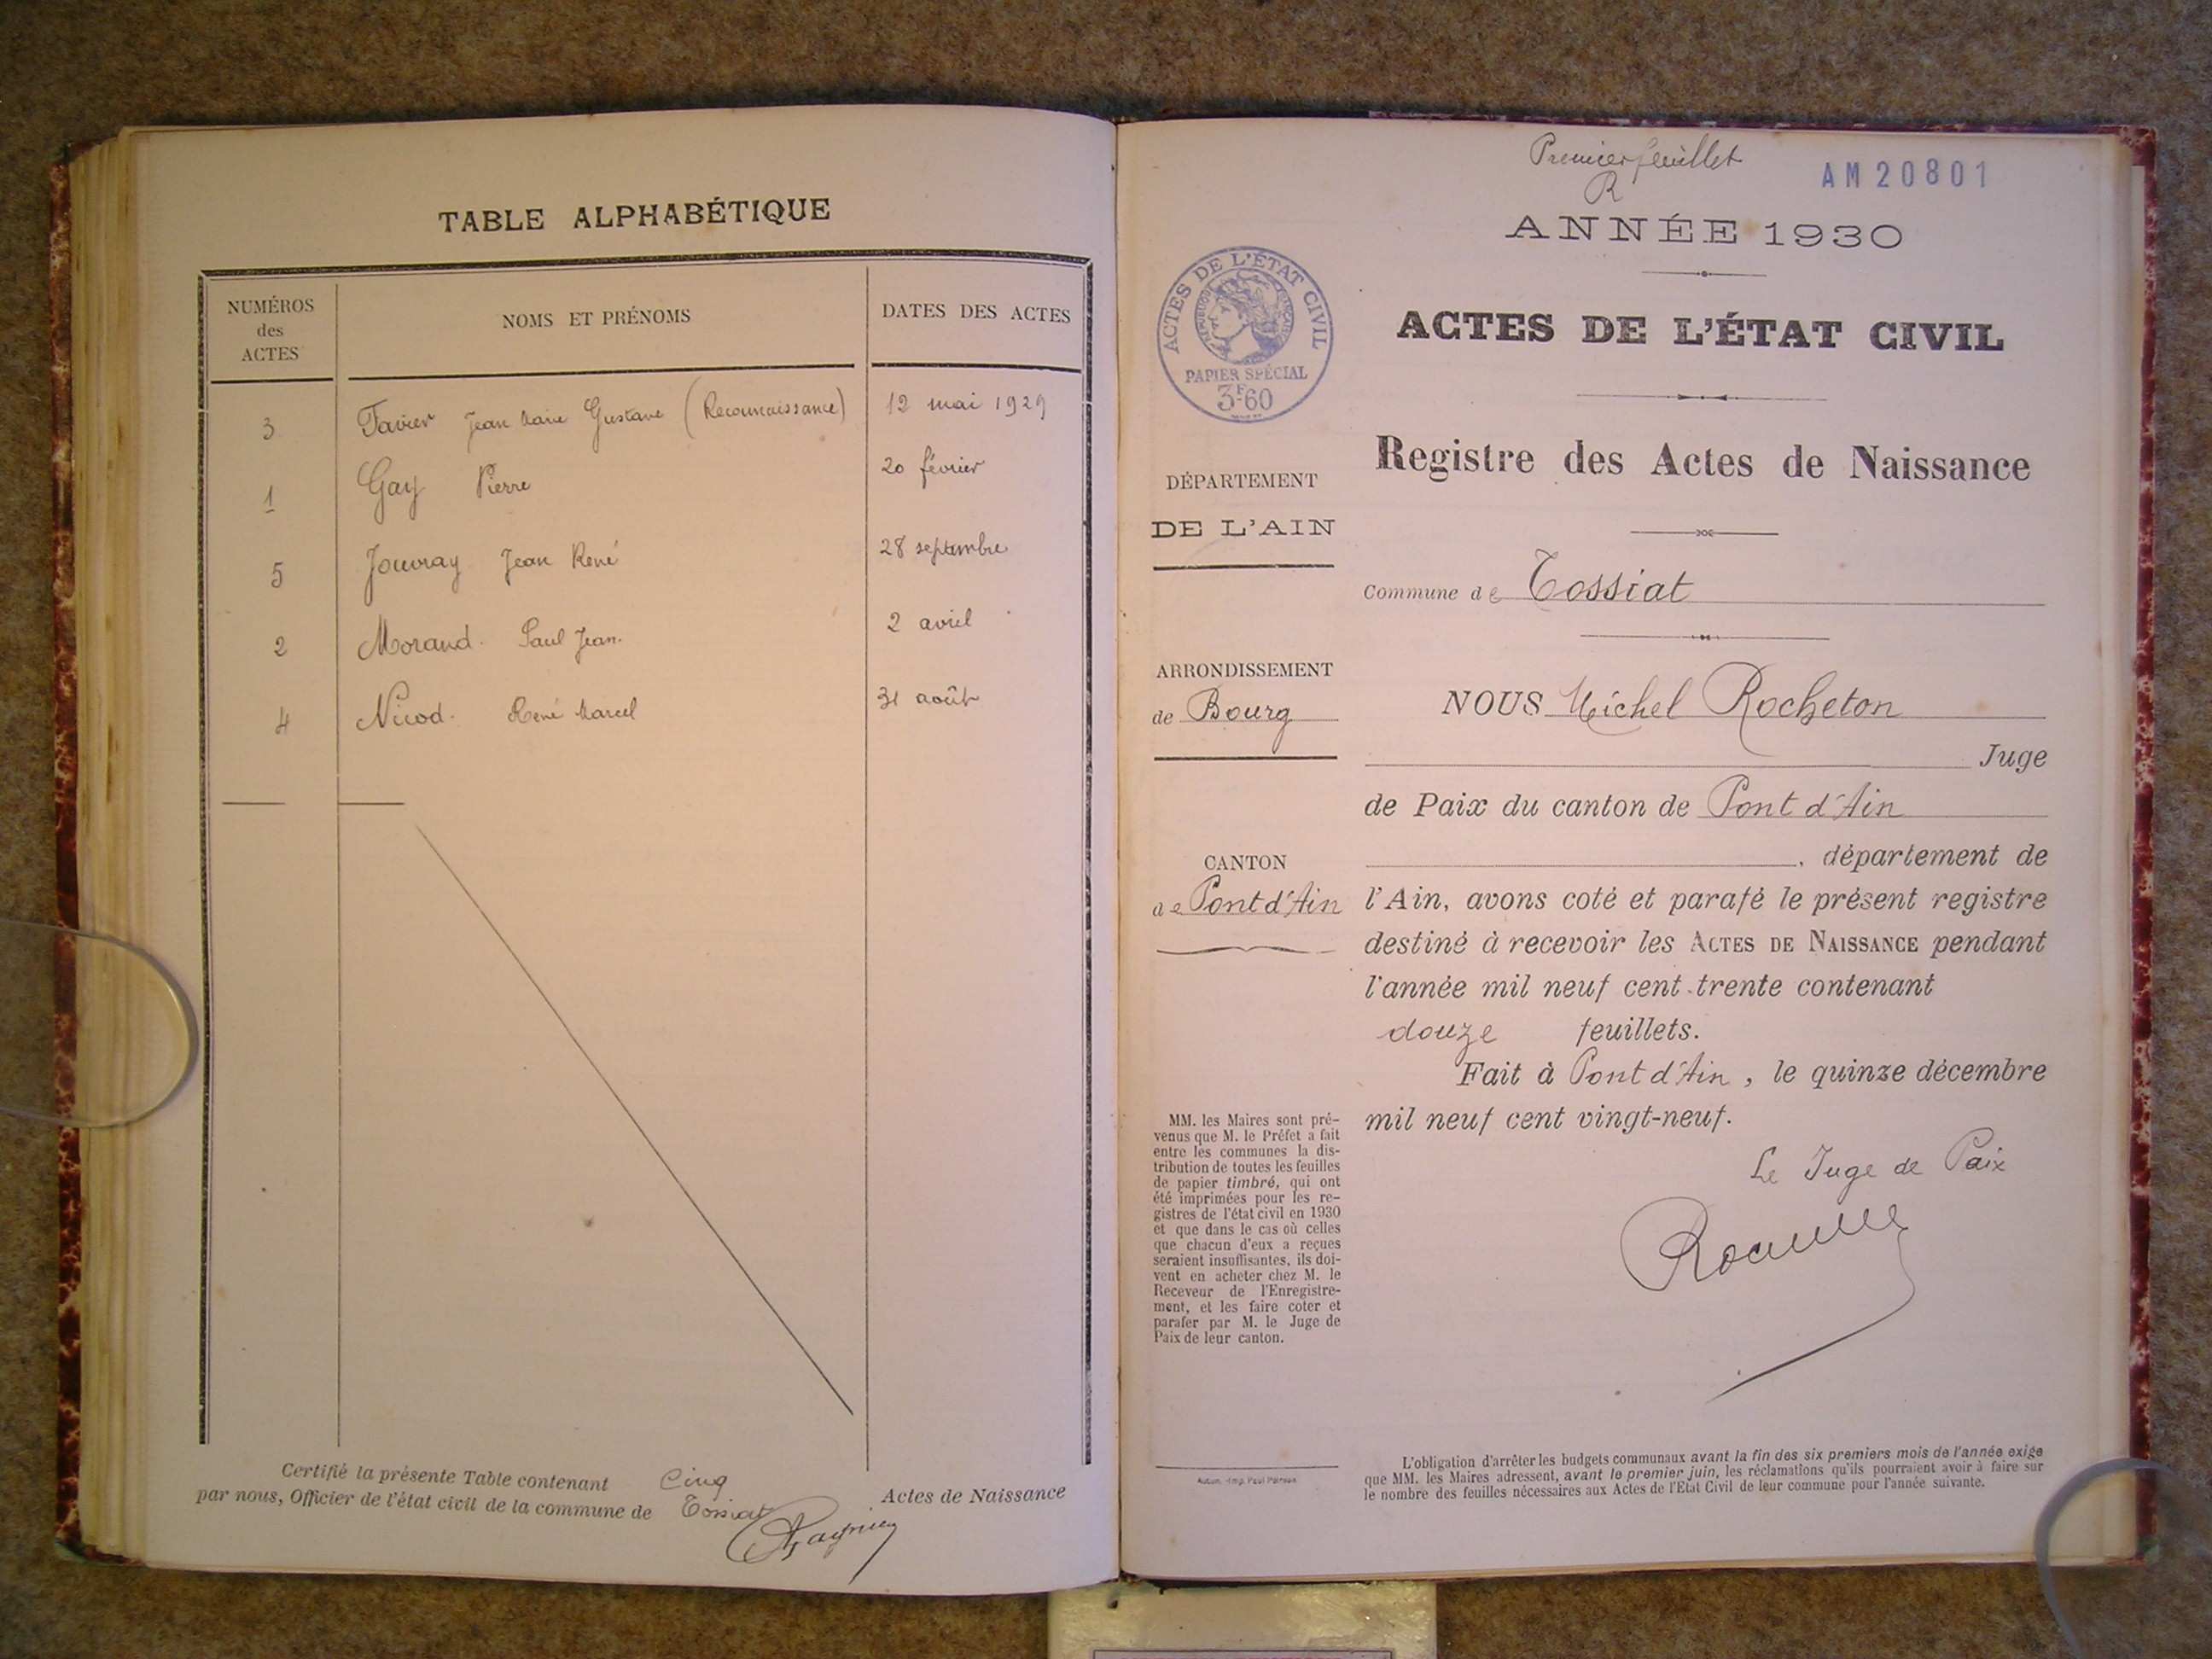 TABLE ALPHABÉTIQUE
NUMÉROS
des
ACTES
NOMS ET PRÉNOMS
DATES DES ACTES
3 Favier Jean Marie Gustave (Reconnaissance) 12 mai 1929
1 Gay Pierre 20 février
5 Jouvray Jean René 28 septembre
2 Morand. Paul Jean. 2 avril
4 Nicod. René Marcel 31 août
Certifié la présente Table contenant Cinq Actes de Naissance
par nous, Officier de l'état civil de la commune de Tossiat
Premier feuillet
R
AM20801
ANNÉE 1930
ACTES DE L'ÉTAT CIVIL
RÉPUBLIQUE FRANÇAISE
PAPIER SPÉCIAL
3F60
ACTES DE L'ÉTAT CIVIL
Registre des Actes de Naissance
DÉPARTEMENT
DE L'AIN
Commune de Tossiat
ARRONDISSEMENT
de Bourg
CANTON
de Pont d'Ain
NOUS Michel Rocheton
Juge
de Paix du canton de Pont d'Ain
, département de
l'Ain, avons coté et parafé le présent registre
destiné à recevoir les ACTES DE NAISSANCE pendant
l'année mil neuf cent trente contenant
douze feuillets.
Fait à Pont d'Ain, le quinze décembre
mil neuf cent vingt-neuf.
Le Juge de Paix
MM. les Maires sont pré-
venus que M. le Préfet a fait
entre les communes la dis-
tribution de toutes les feuilles
de papier timbré, qui ont
été imprimées pour les re-
gistres de l'état civil en 1930
et que dans le cas où celles
que chacun d'eux a reçues
seraient insuffisantes, ils doi-
vent en acheter chez M. le
Receveur de l'Enregistre-
ment, et les faire coter et
parafer par M. le Juge de
Paix de leur canton.
L'obligation d'arrêter les budgets communaux avant la fin des six premiers mois de l'année exige
que MM. les Maires adressent, avant le premier juin, les réclamations qu'ils pourraient avoir à faire sur
le nombre des feuilles nécessaires aux Actes de l'Etat Civil de leur commune pour l'année suivante.